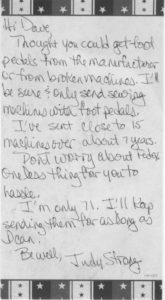 Hi Dave,
Thought you could get foot
pedals from the manufacturer
or from broken machines. I'll
be sure & only send sewing
machines with foot pedals.
I've sent close to 15
machines over about 7 years.
Don't worry about pedals
One less thing for you to
hassle.
I'm only 71. I'll keep
sending them for as long as
I can.
Be well,
Judy Strong